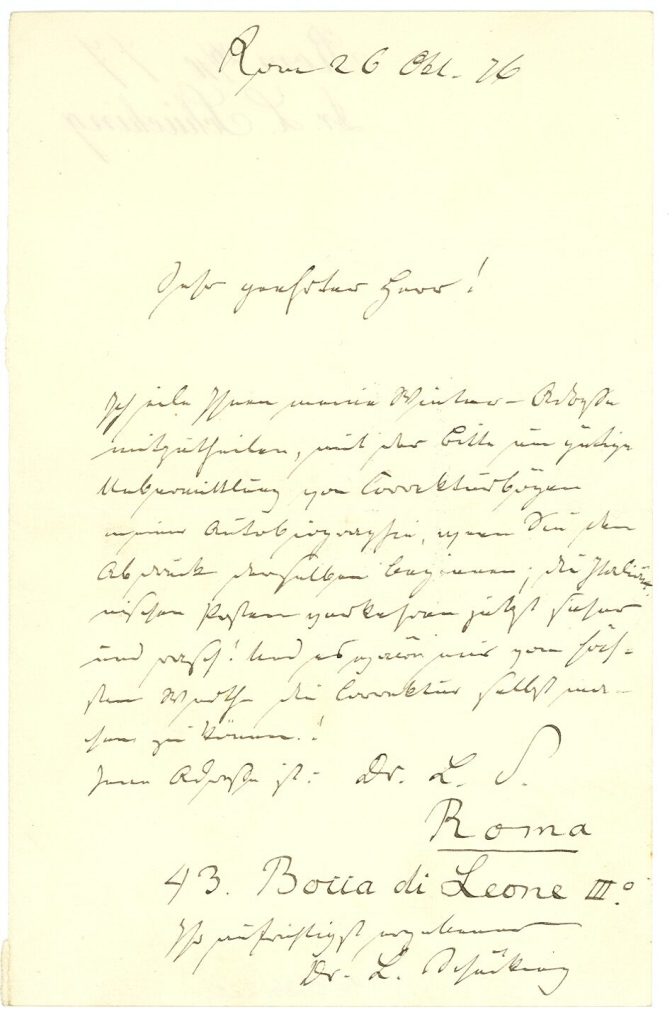 Rom 26 Okt. 76
Sehr geehrter Herr!
Ich eile Ihnen meine Winter-Adresse
mitzutheilen, mit der Bitte um gütige
Uebermittlung von Correkturbögen
meiner Autobiographie, wenn Sie den
Abdruck derselben beginnen; die Italiä-
nischen Posten verkehren jetzt sicher
und rasch! Und es wäre mir vom höch-
sten Werthe die Correktur selbst ma-
chen zu können.!
Jene Adresse ist: Dr. L. S.
Roma
43. Bocca di Leone III.°
Ihr aufrichtigst ergebener
Dr. L. Schücking